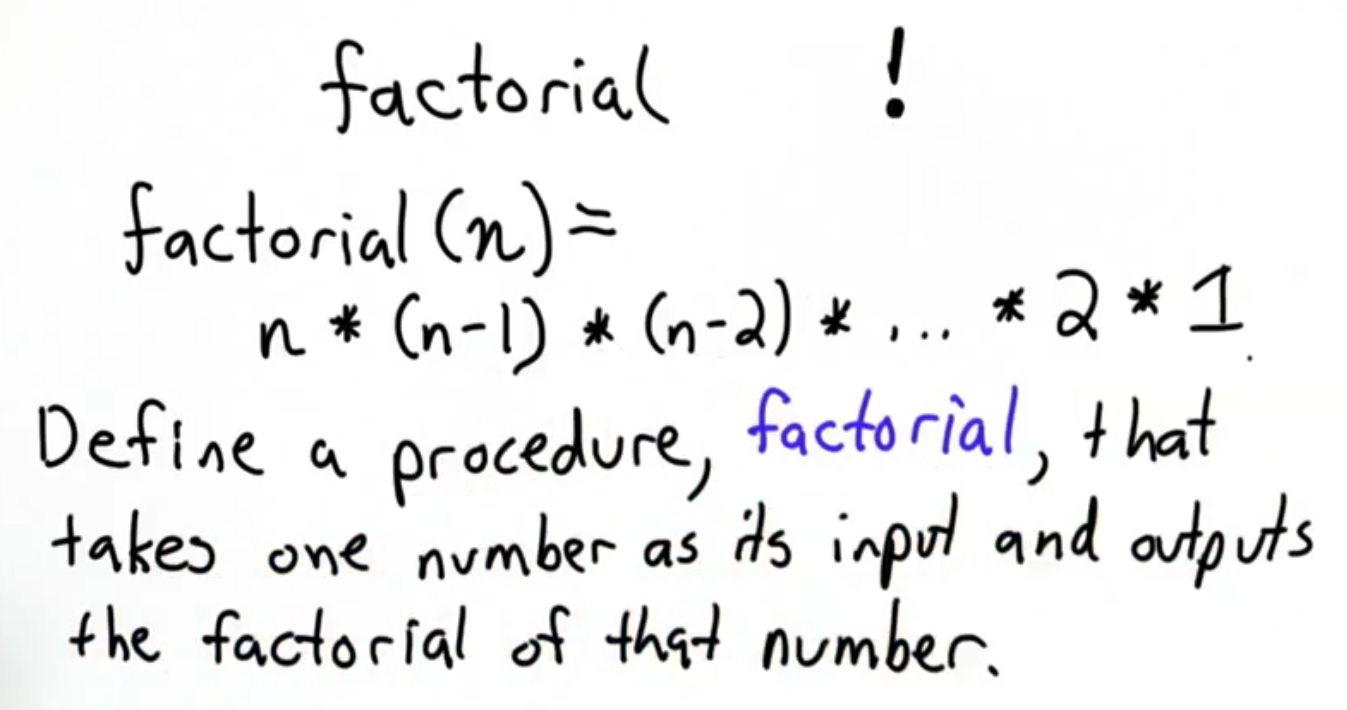 factorial !
factorial (n) =
n * (n-1) * (n-2) * ... * 2 * 1
Define a procedure, factorial, that
takes one number as its input and outputs
the factorial of that number.